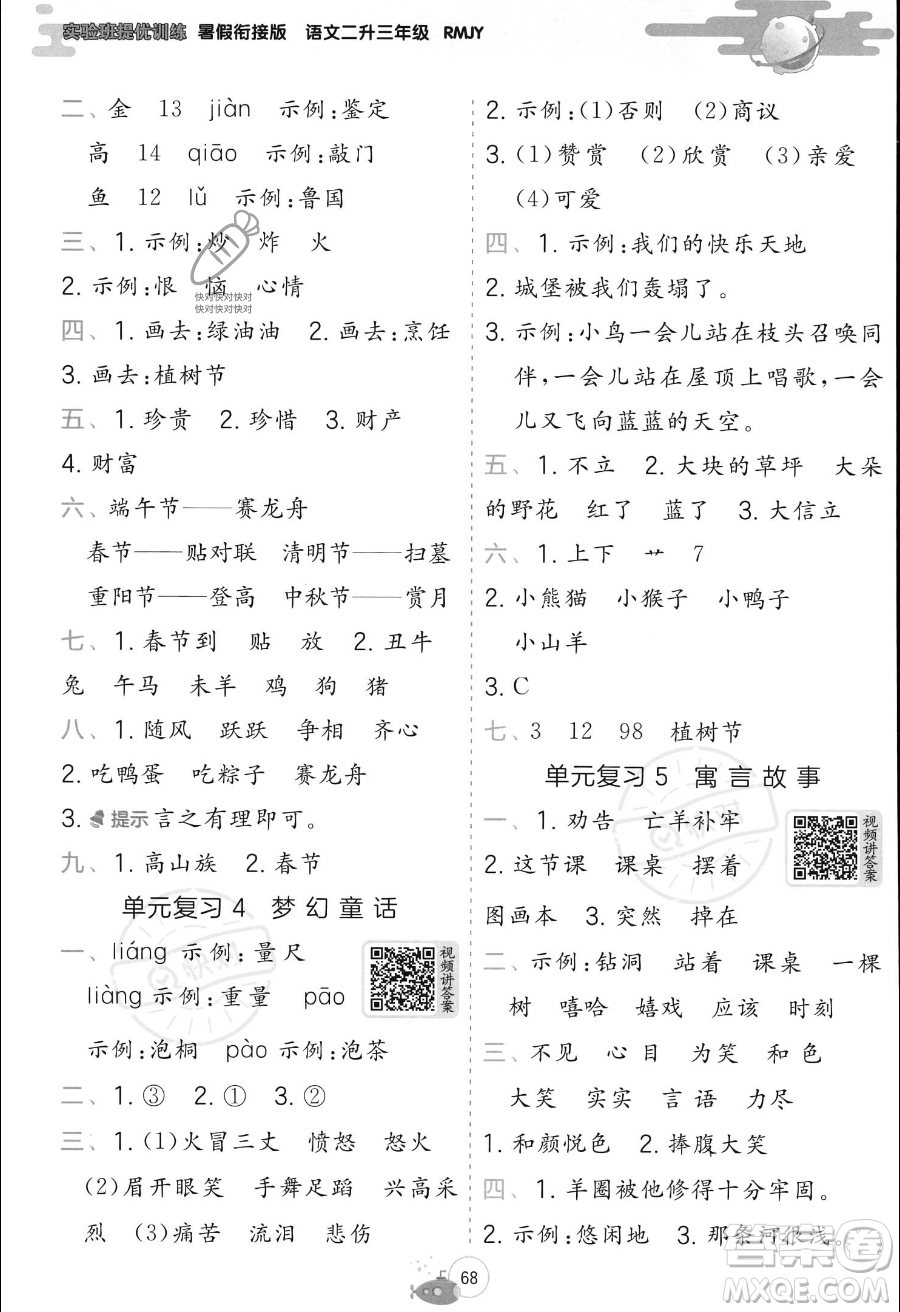 实验班提优训练 暑假衔接版 语文二升三年级 RMJY
二、金 13 jiàn 示例:鉴定
高 14 qiāo 示例:敲门
鱼 12 lǔ 示例:鲁国
三、1. 示例:炒 炸 火
2. 示例:恨 恼 心情
快对快对快对快对
快对快对快对快对
四、1. 画去:绿油油 2. 画去:烹饪
3. 画去:植树节
五、1. 珍贵 2. 珍惜 3. 财产
4. 财富
六、端午节——赛龙舟
春节——贴对联 清明节——扫墓
重阳节——登高 中秋节——赏月
七、1. 春节到 贴 放 2. 丑牛
兔 午马 未羊 鸡 狗 猪
八、1. 随风 跃跃 争相 齐心
2. 吃鸭蛋 吃粽子 赛龙舟
3. 提示 言之有理即可。
九、1. 高山族 2. 春节
单元复习 4 梦幻童话
一、liáng 示例:量尺
liàng 示例:重量 pāo
示例:泡桐 pào 示例:泡茶
视频讲答案
二、1. ③ 2. ① 3. ②
三、1. (1)火冒三丈 愤怒 怒火
(2)眉开眼笑 手舞足蹈 兴高采
烈 (3)痛苦 流泪 悲伤
2. 示例:(1)否则 (2)商议
3. (1)赞赏 (2)欣赏 (3)亲爱
(4)可爱
四、1. 示例:我们的快乐天地
2. 城堡被我们轰塌了。
3. 示例:小鸟一会儿站在枝头召唤同
伴,一会儿站在屋顶上唱歌,一会
儿又飞向蓝蓝的天空。
五、1. 不立 2. 大块的草坪 大朵
的野花 红了 蓝了 3. 大信立
六、1. 上下 艹 7
2. 小熊猫 小猴子 小鸭子
小山羊
3. C
七、3 12 98 植树节
单元复习 5 寓言故事
一、1. 劝告 亡羊补牢
2. 这节课 课桌 摆着
图画本 3. 突然 掉在
视频讲答案
二、示例:钻洞 站着 课桌 一棵
树 嘻哈 嬉戏 应该 时刻
三、不见 心目 为笑 和色
大笑 实实 言语 力尽
1. 和颜悦色 2. 捧腹大笑
四、1. 羊圈被他修得十分牢固。
2. 示例:悠闲地 3. 那条河很浅。
68
答案圈
MXQE.COM